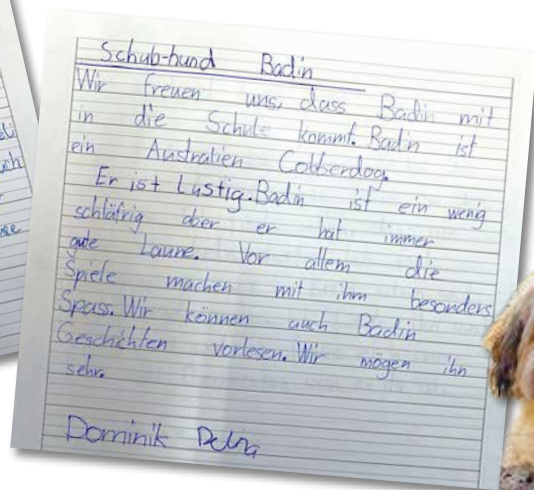 Schub-hund Badin
Wir freuen uns, dass Badin mit
in die Schule kommt. Badin ist
ein Australien Cobberdog.
Er ist Lustig. Badin ist ein wenig
schläfrig aber er hat immer
gute Laune. Vor allem die
Spiele machen mit ihm besonders
Spass. Wir können auch Badin
Geschichten vorlesen. Wir mögen ihn
sehr.
Dominik